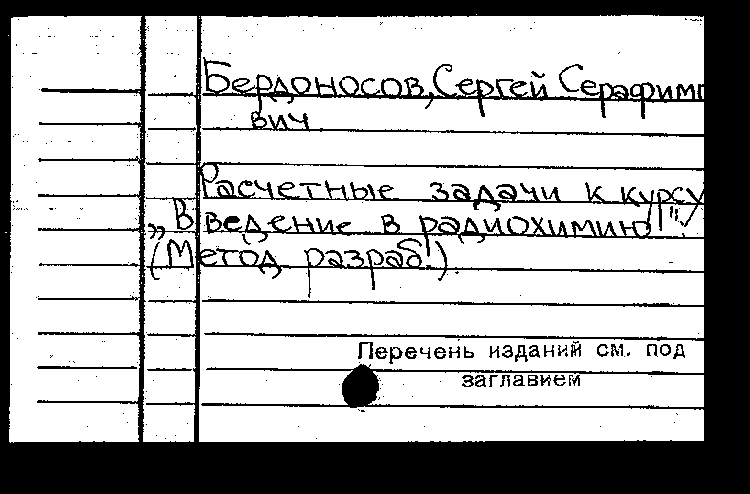 Бердоносов, Сергей Серафимо
вич
Расчетные задачи к курсу
„Введение в радиохимию".
(Метод. разраб.).
Перечень изданий см. под
заглавием